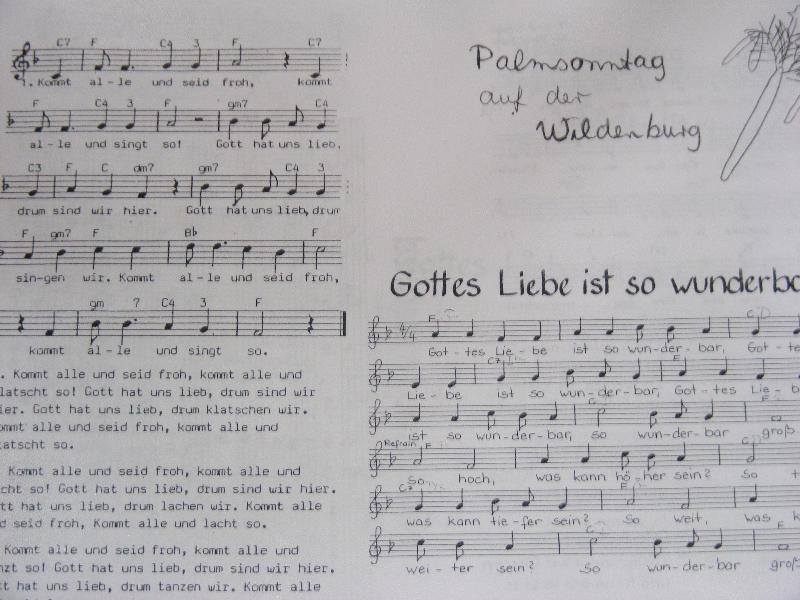 C7 F C4 3 F C7
1. Kommt al-le und seid froh, kommt
F C4 3 F gm7 C4
al-le und singt so! Gott hat uns lieb,
C3 F C dm7 gm7 C4 3
drum sind wir hier. Gott hat uns lieb, drum
F gm7 F Bb F
sin-gen wir. Kommt al-le und seid froh,
gm 7 C4 3 F
kommt al-le und singt so.
. Kommt alle und seid froh, kommt alle und
latscht so! Gott hat uns lieb, drum sind wir
ier. Gott hat uns lieb, drum klatschen wir.
ommt alle und seid froh, kommt alle und
latscht so.
Kommt alle und seid froh, kommt alle und
cht so! Gott hat uns lieb, drum sind wir hier.
tt hat uns lieb, drum lachen wir. Kommt alle
d seid froh, Kommt alle und lacht so.
Kommt alle und seid froh, kommt alle und
nzt so! Gott hat uns lieb, drum sind wir hier.
tt hat uns lieb, drum tanzen wir. Kommt alle
Palmsonntag
auf der
Wildenburg
Gottes Liebe ist so wunderba
4/4 F
Got-tes Lie-be ist so wun-der-bar, Got-te
C7 F
Lie-be ist so wun-der-bar, Got-tes Lie-b
ist so wun-der-bar, so wun-der-bar groß
Refrain F
So hoch, was kann hö-her sein? So
C7 F
was kann tie-fer sein? So weit, was k
wei-ter sein? So wun-der-bar groß